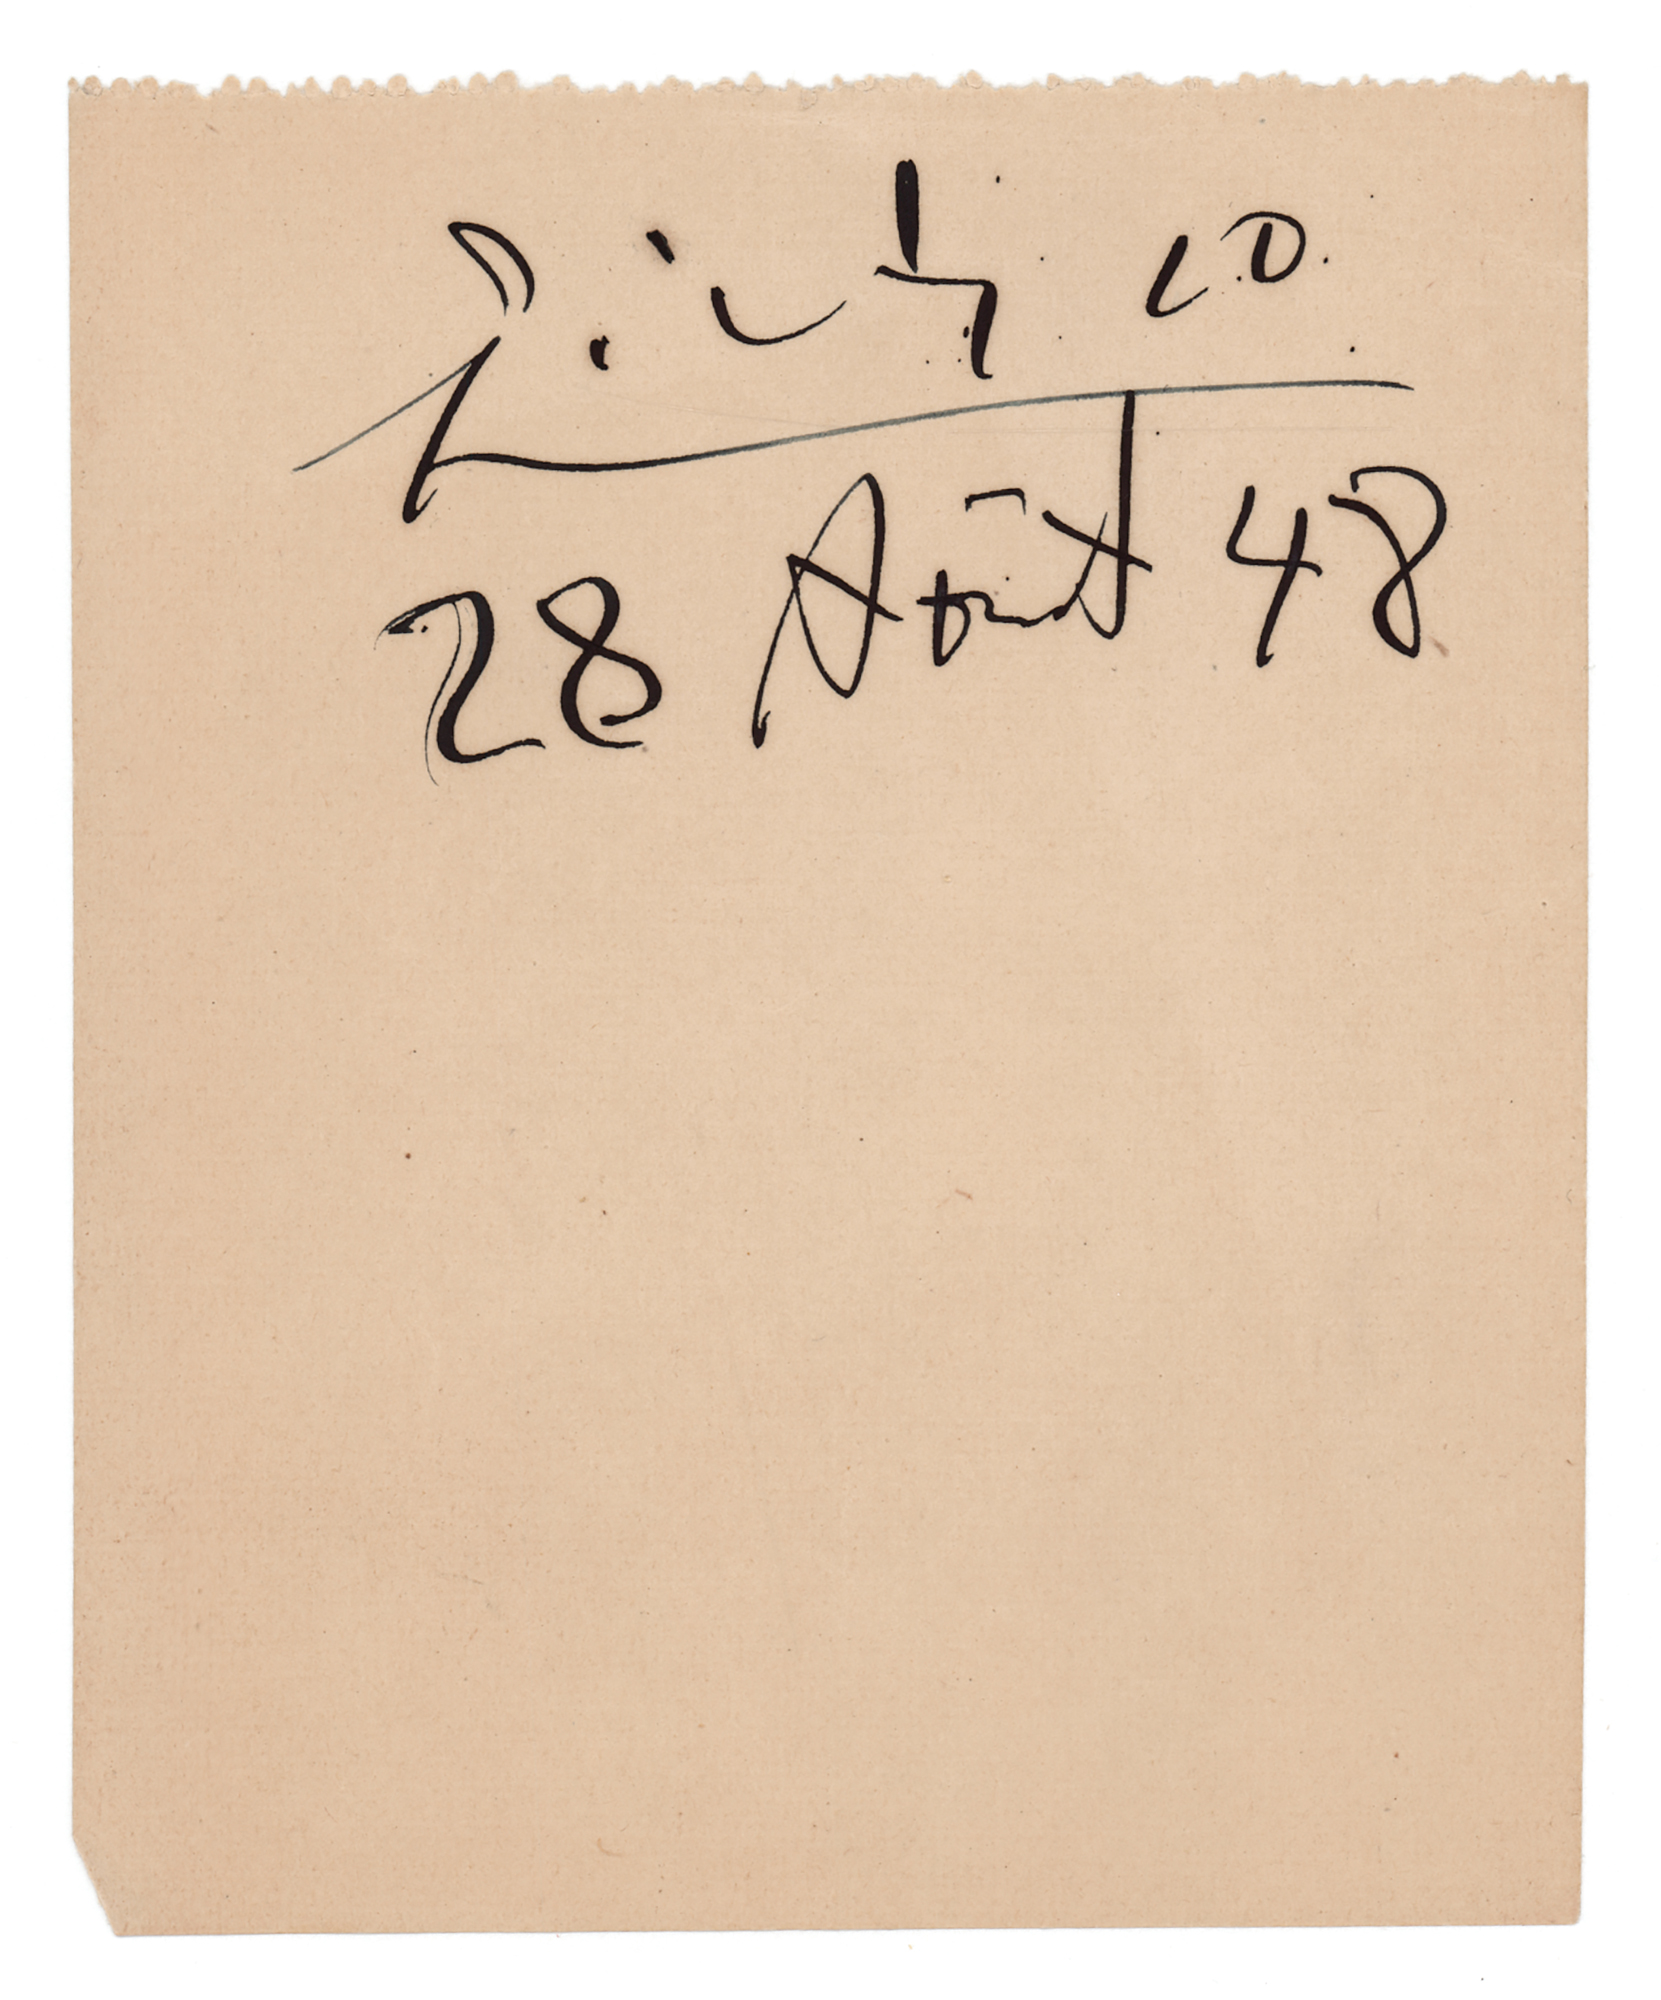 Picasso
28 Août 48